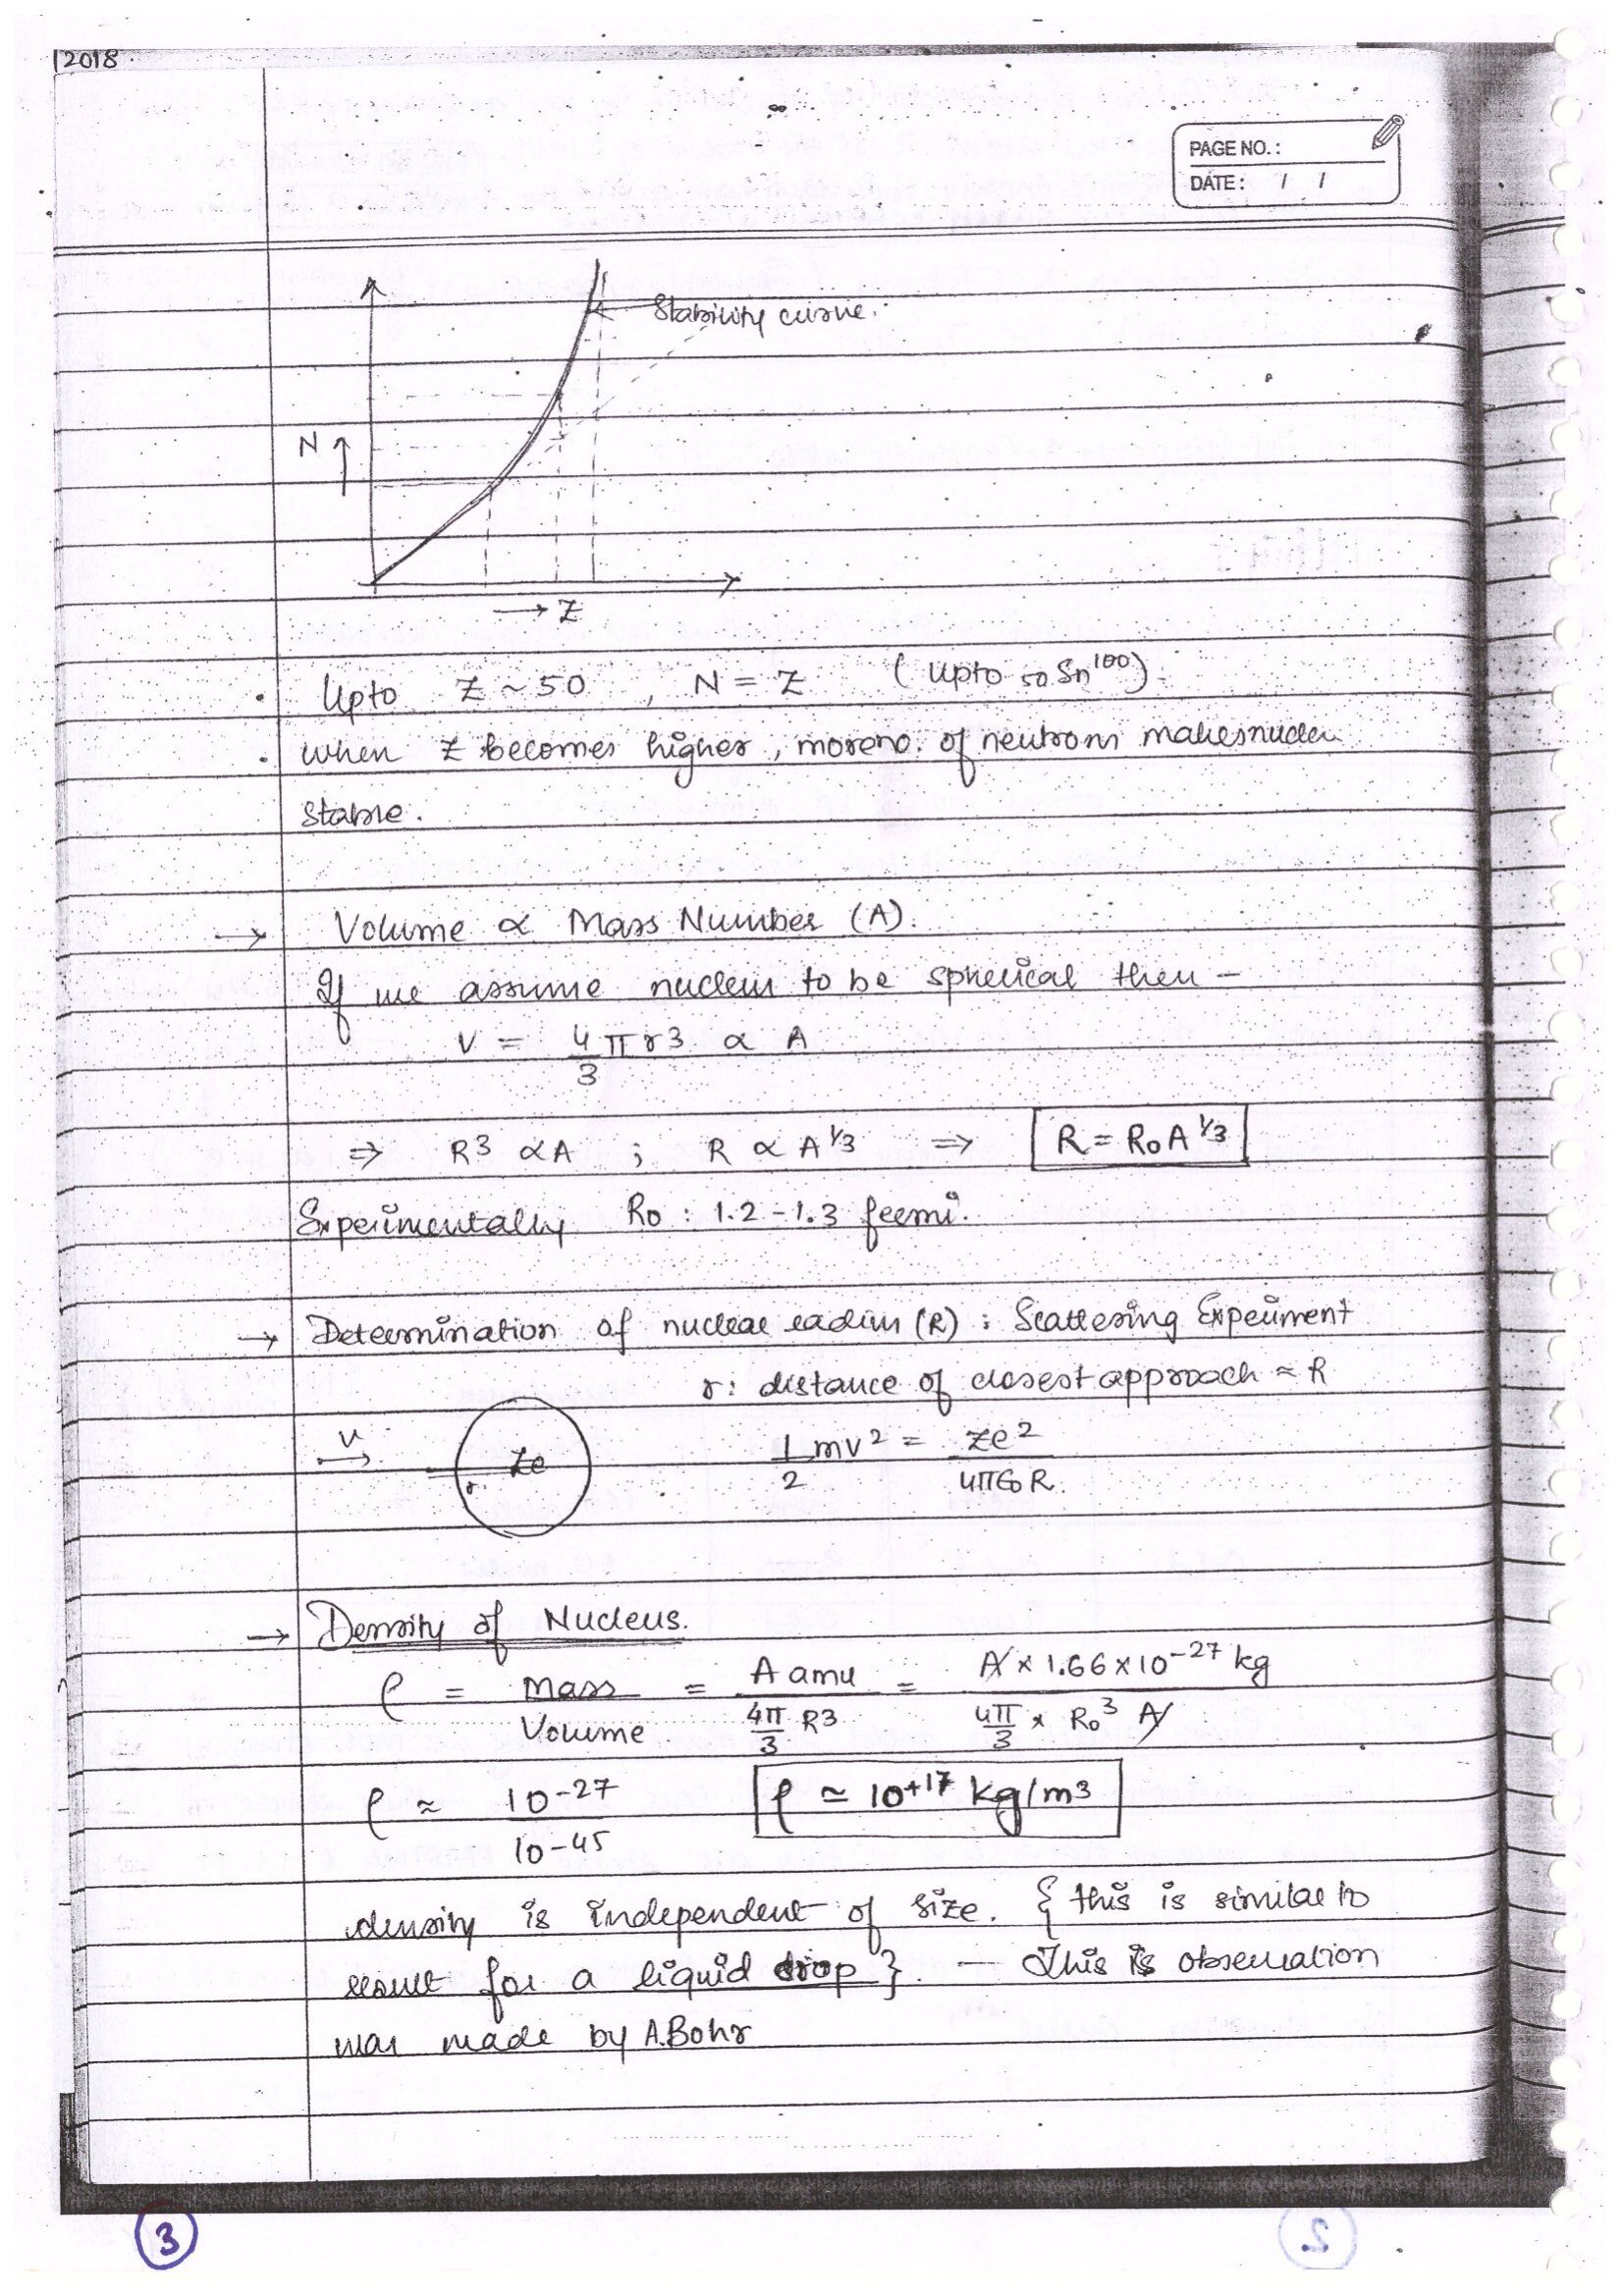 2018
PAGE NO.:
DATE: / /
Stability curve.
N ↑
→ Z
• Upto Z ~ 50 , N = Z (upto ₅₀Sn¹⁰⁰).
• when Z becomes higher, more no. of neutrons makes nuclei
stable.
→ Volume ∝ Mass Number (A).
If we assume nucleus to be spherical then –
V = 4/3 π r³ ∝ A
⇒ R³ ∝ A ; R ∝ A^1/3 ⇒ R = R₀A^1/3
Experimentally R₀ : 1.2 - 1.3 fermi.
→ Determination of nuclear radius (R) : Scattering Experiment
r : distance of closest approach ≈ R
v → Ze r. 1/2 mv² = Ze²/4π∈₀R.
→ Density of Nucleus.
ρ = Mass/Volume = A amu / (4π/3 R³) = A × 1.66 × 10⁻²⁷ kg / (4π/3 × R₀³ A)
ρ ≈ 10⁻²⁷/10⁻⁴⁵ ρ ≃ 10⁺¹⁷ kg/m³
density is independent of size. { this is similar to
result for a liquid drop }. — This is observation
was made by A.Bohr
3
2